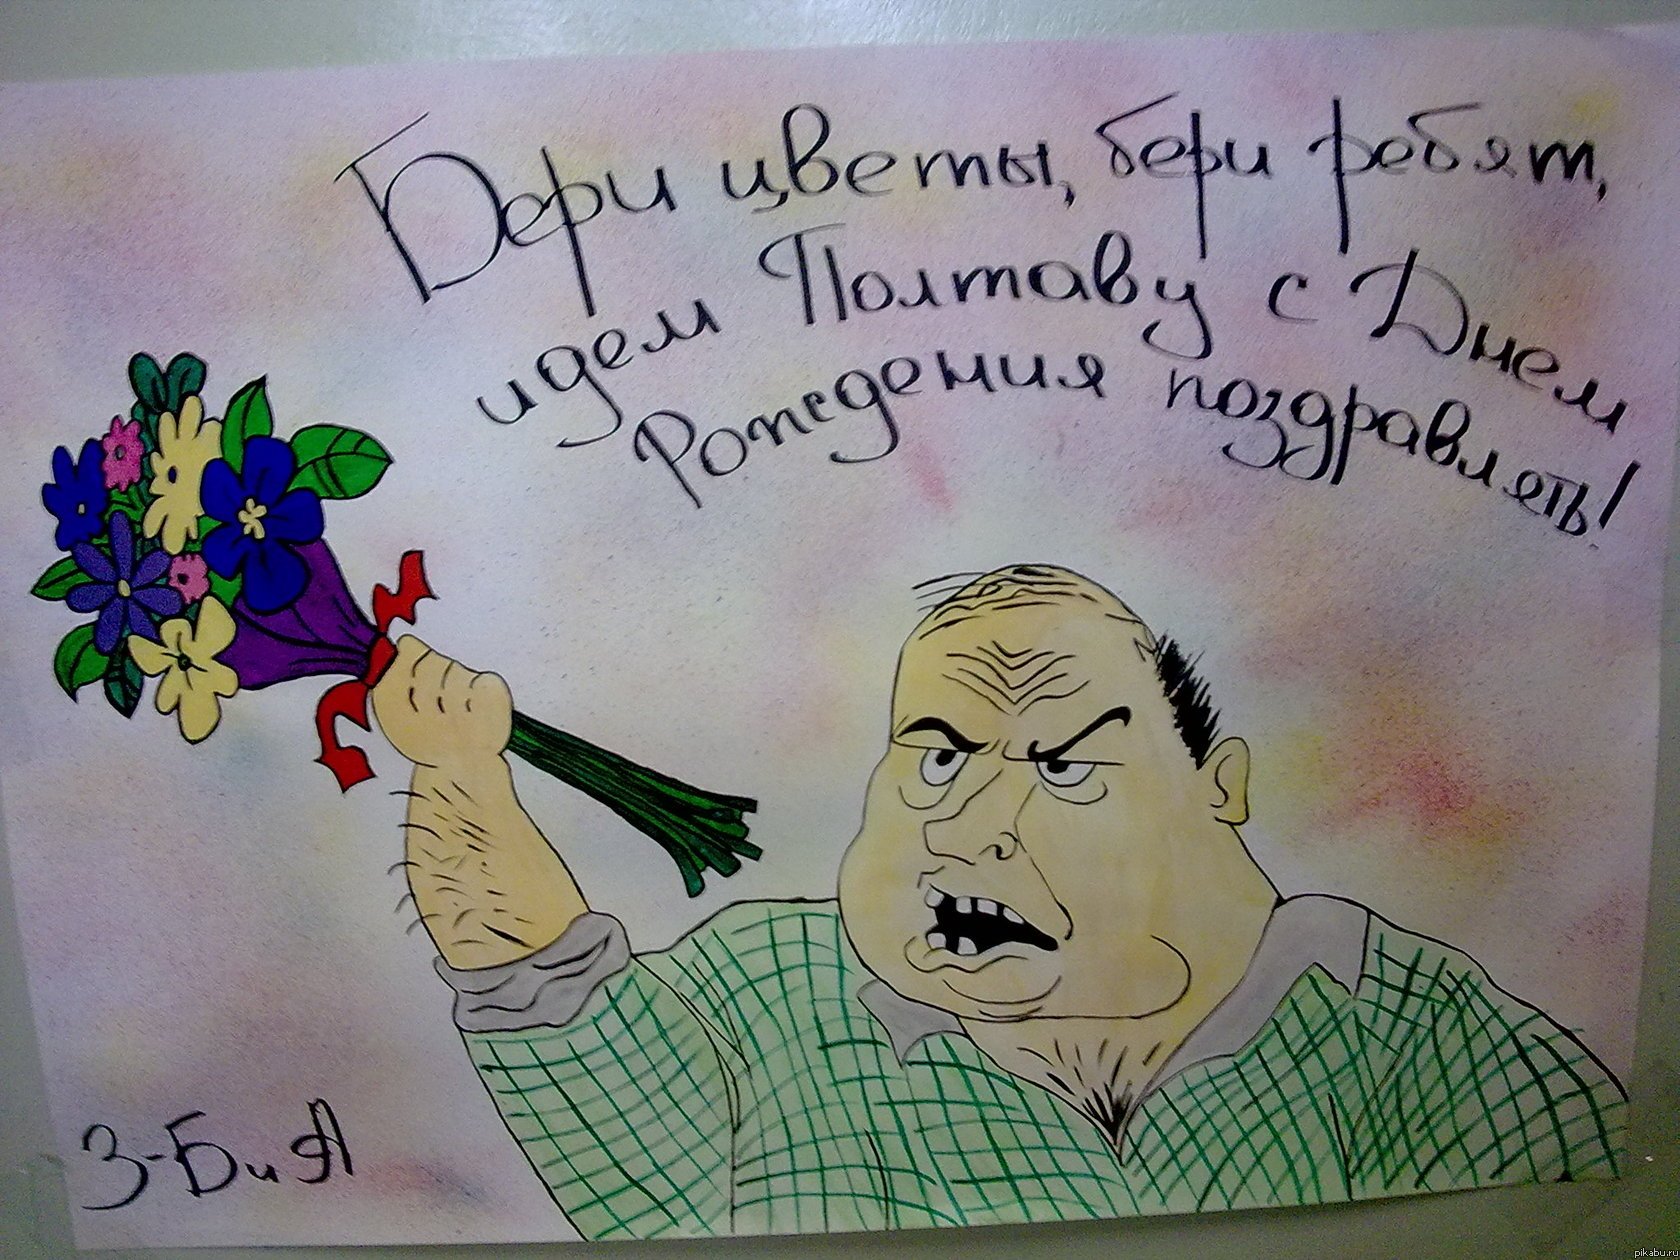 Бери цветы, бери ребят,
идем Полтаву с Днем
Рождения поздравлять!
З-БиЯ
pikabu.ru